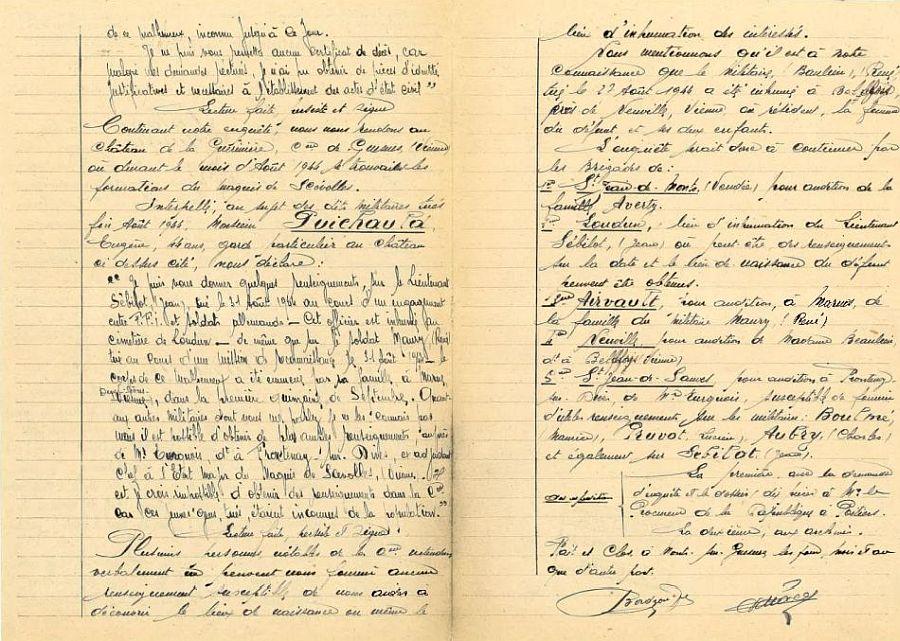 de ce malheureux, inconnu jusqu'à ce jour.
Je ne puis vous remettre aucun certificat de décès, car
malgré mes demandes je n'ai pu obtenir de pièces d'identité
justificatives et nécessaires à l'établissement des actes d'état civil"
Lecture faite, persiste et signe
Continuant notre enquête, nous nous rendons au
château de la , Cne de Guesnes, (Vienne)
où durant le mois d'Août 1944 se trouvaient les
formations du maquis de Scévolles.
Interpellé, au sujet des dits militaires tués
fin Août 1944, Monsieur
Eugène, 44 ans, garde particulier au château
ci dessus cité, nous déclare :
"Je puis vous donner quelques renseignements, sur le Lieutenant
Sébilot (Jean), tué le 31 Août 1944 au cours d'un engagement
entre F.F.I. et soldats allemands – Cet officier est inhumé au
cimetière de Loudun – de même que sur le soldat Maury (René)
tué au cours d'une mission de le 31 Août 1944 – le
corps de ce malheureux a été emmené par sa famille à
Deux-Sèvres
Vienne, dans la première quinzaine de Septembre. Quant
aux autres militaires dont vous me parlez, je ne les connais pas
mais il est possible d'obtenir de plus amples renseignements, auprès
de Mr à Frontenay sur Dive, ex adjudant
chef à l'Etat major du Maquis de Scévolles, (Vienne).
et je crois impossible d'obtenir des renseignements dans la Cne
car ces jeunes gens, tués, étaient inconnus de la population."
Lecture faite, persiste et signe.
Plusieurs personnes notables de la Cne entendues
verbalement ne peuvent nous fournir aucun
renseignement susceptible de nous aider à
découvrir le lieu de naissance ou même le
lieu d'inhumation des intéressés.
Nous mentionnons qu'il est à notre
connaissance que le militaire, Beaulieu, (René)
tué le 27 Août 1944 a été inhumé à
près de Neuville, Vienne, où résident, la femme
du défunt et ses deux enfants.
L'enquête serait donc à continuer par
les Brigades de :
1° St Jean-de-Monts, (Vendée) pour audition de la
famille Averty.
Loudun, lieu d'inhumation du Lieutenant
Sébilot, (Jean) où peut être des renseignements
sur la date et le lieu de naissance du défunt
peuvent être obtenus.
3me Airvault, pour audition, à de
la famille du militaire Maury (René)
4me Neuville pour audition de Madame Beaulieu
à (Vienne)
5me St Jean-de-Sauves pour audition à Frontenay
sur Dive, de Mr , susceptible de fournir
d'utiles renseignements sur les militaires :
(Maurice), Provot, (Lucien), Aubry, (Charles)
et également sur Sébilot. (Jean)
Deux expéditions
La première avec la demande
d'enquête et le dossier à Mr le
Procureur de la République à Poitiers.
La deuxième, aux archives.
Fait et clos, à les jour, mois et an
que d'autre part.